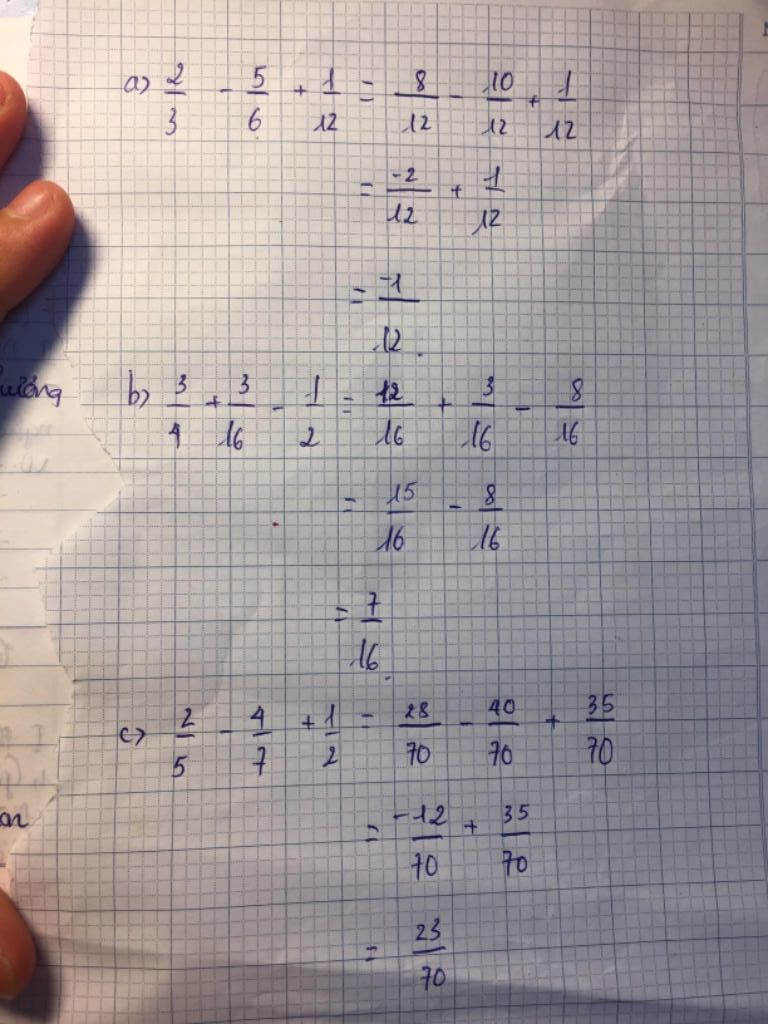 a) 2/3 - 5/6 + 1/12 = 8/12 - 10/12 + 1/12
= -2/12 + 1/12
= -1/12.
b) 3/4 + 3/16 - 1/2 = 12/16 + 3/16 - 8/16
= 15/16 - 8/16
= 7/16.
c) 2/5 - 4/7 + 1/2 = 28/70 - 40/70 + 35/70
= -12/70 + 35/70
= 23/70